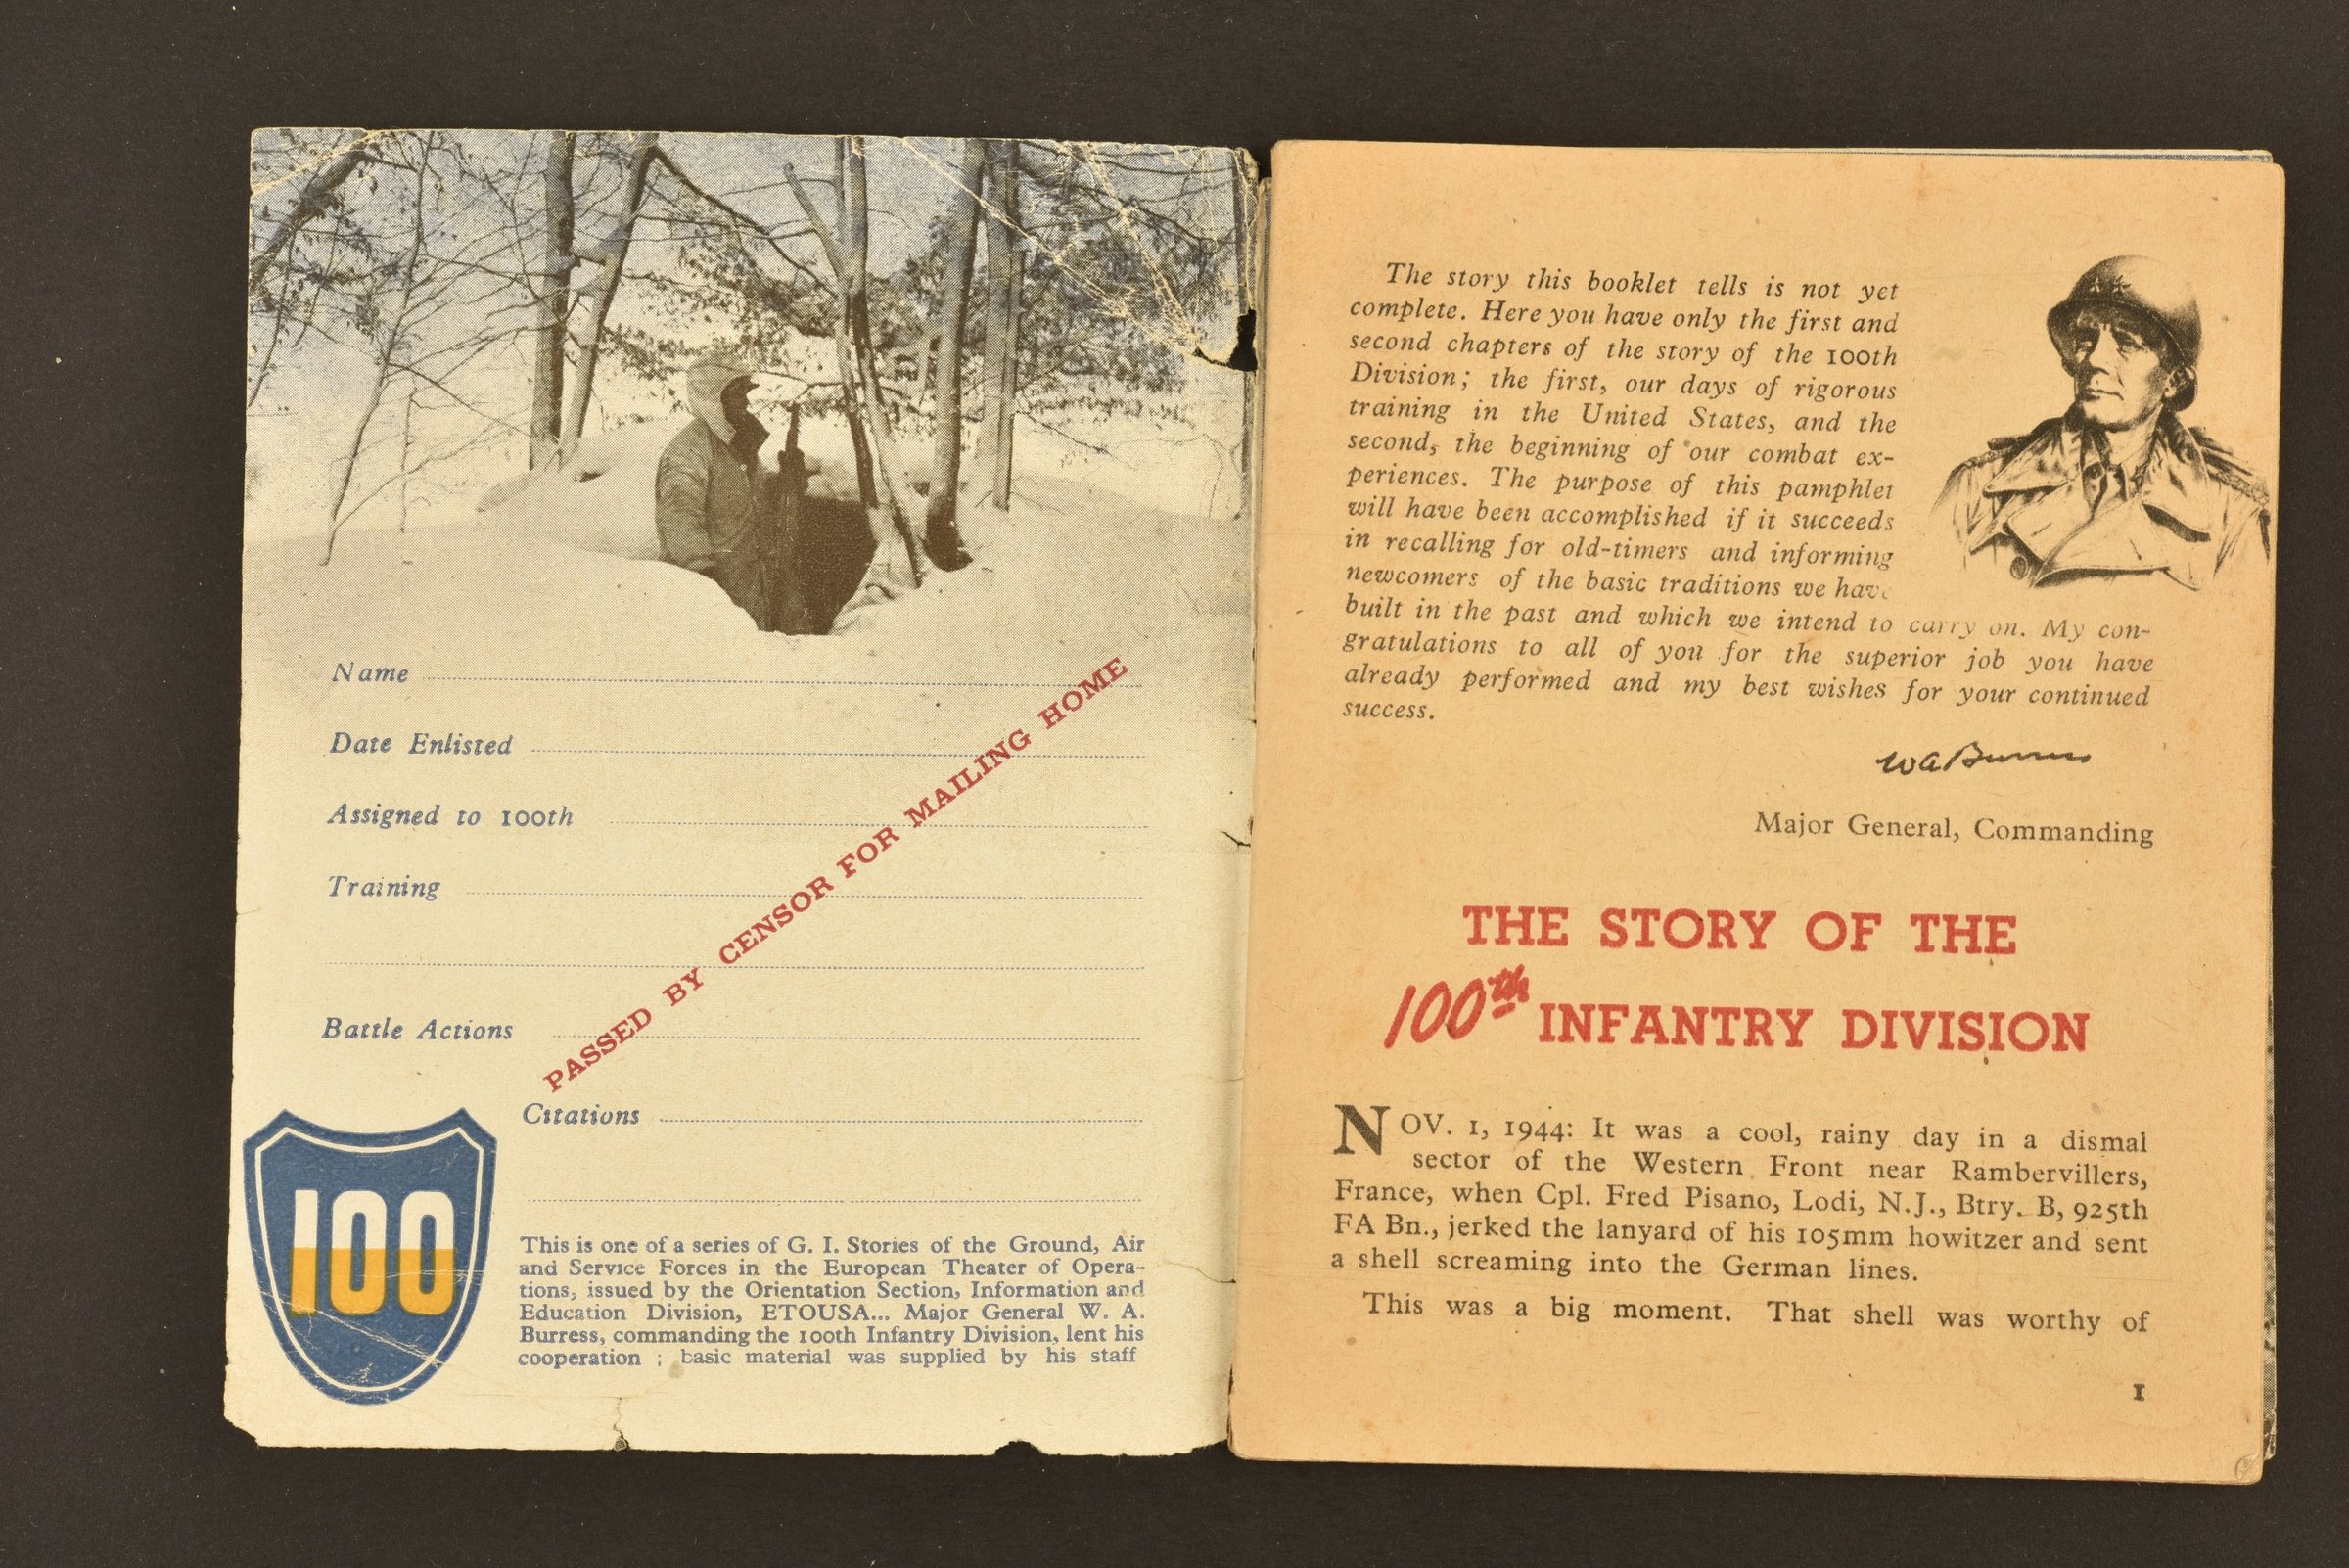 Name
Date Enlisted
Assigned to 100th
Training
Battle Actions
Citations
PASSED BY CENSOR FOR MAILING HOME
100
This is one of a series of G. I. Stories of the Ground, Air
and Service Forces in the European Theater of Opera-
tions, issued by the Orientation Section, Information and
Education Division, ETOUSA... Major General W. A.
Burress, commanding the 100th Infantry Division, lent his
cooperation ; basic material was supplied by his staff
The story this booklet tells is not yet
complete. Here you have only the first and
second chapters of the story of the 100th
Division; the first, our days of rigorous
training in the United States, and the
second, the beginning of our combat ex-
periences. The purpose of this pamphlet
will have been accomplished if it succeeds
in recalling for old-timers and informing
newcomers of the basic traditions we have
built in the past and which we intend to carry on. My con-
gratulations to all of you for the superior job you have
already performed and my best wishes for your continued
success.
WA Burress
Major General, Commanding
THE STORY OF THE
100th INFANTRY DIVISION
NOV. 1, 1944: It was a cool, rainy day in a dismal
sector of the Western Front near Rambervillers,
France, when Cpl. Fred Pisano, Lodi, N.J., Btry. B, 925th
FA Bn., jerked the lanyard of his 105mm howitzer and sent
a shell screaming into the German lines.
This was a big moment. That shell was worthy of
1